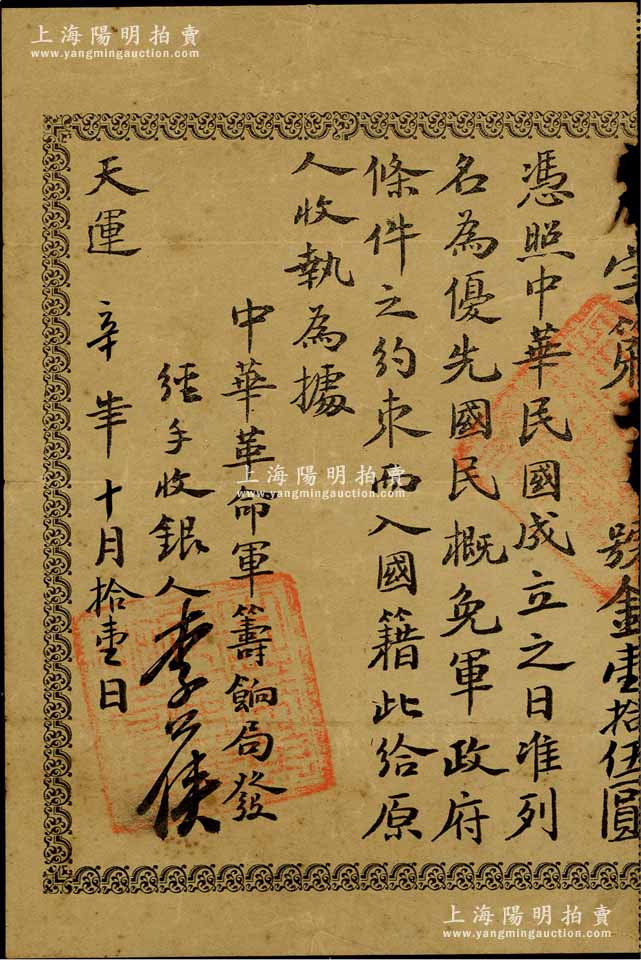 上海陽明拍賣
www.yangmingauction.com
字第 號金壹拾伍圓
憑照中華民國成立之日准列
名為優先國民概免軍政府
條件之約束而入國籍此給原
人收執為據
中華革命軍籌餉局發
經手收銀人李公俠
天運 辛亥年十月拾壹日
上海陽明拍賣
www.yangmingauction.com
上海陽明拍賣
www.yangmingauction.com